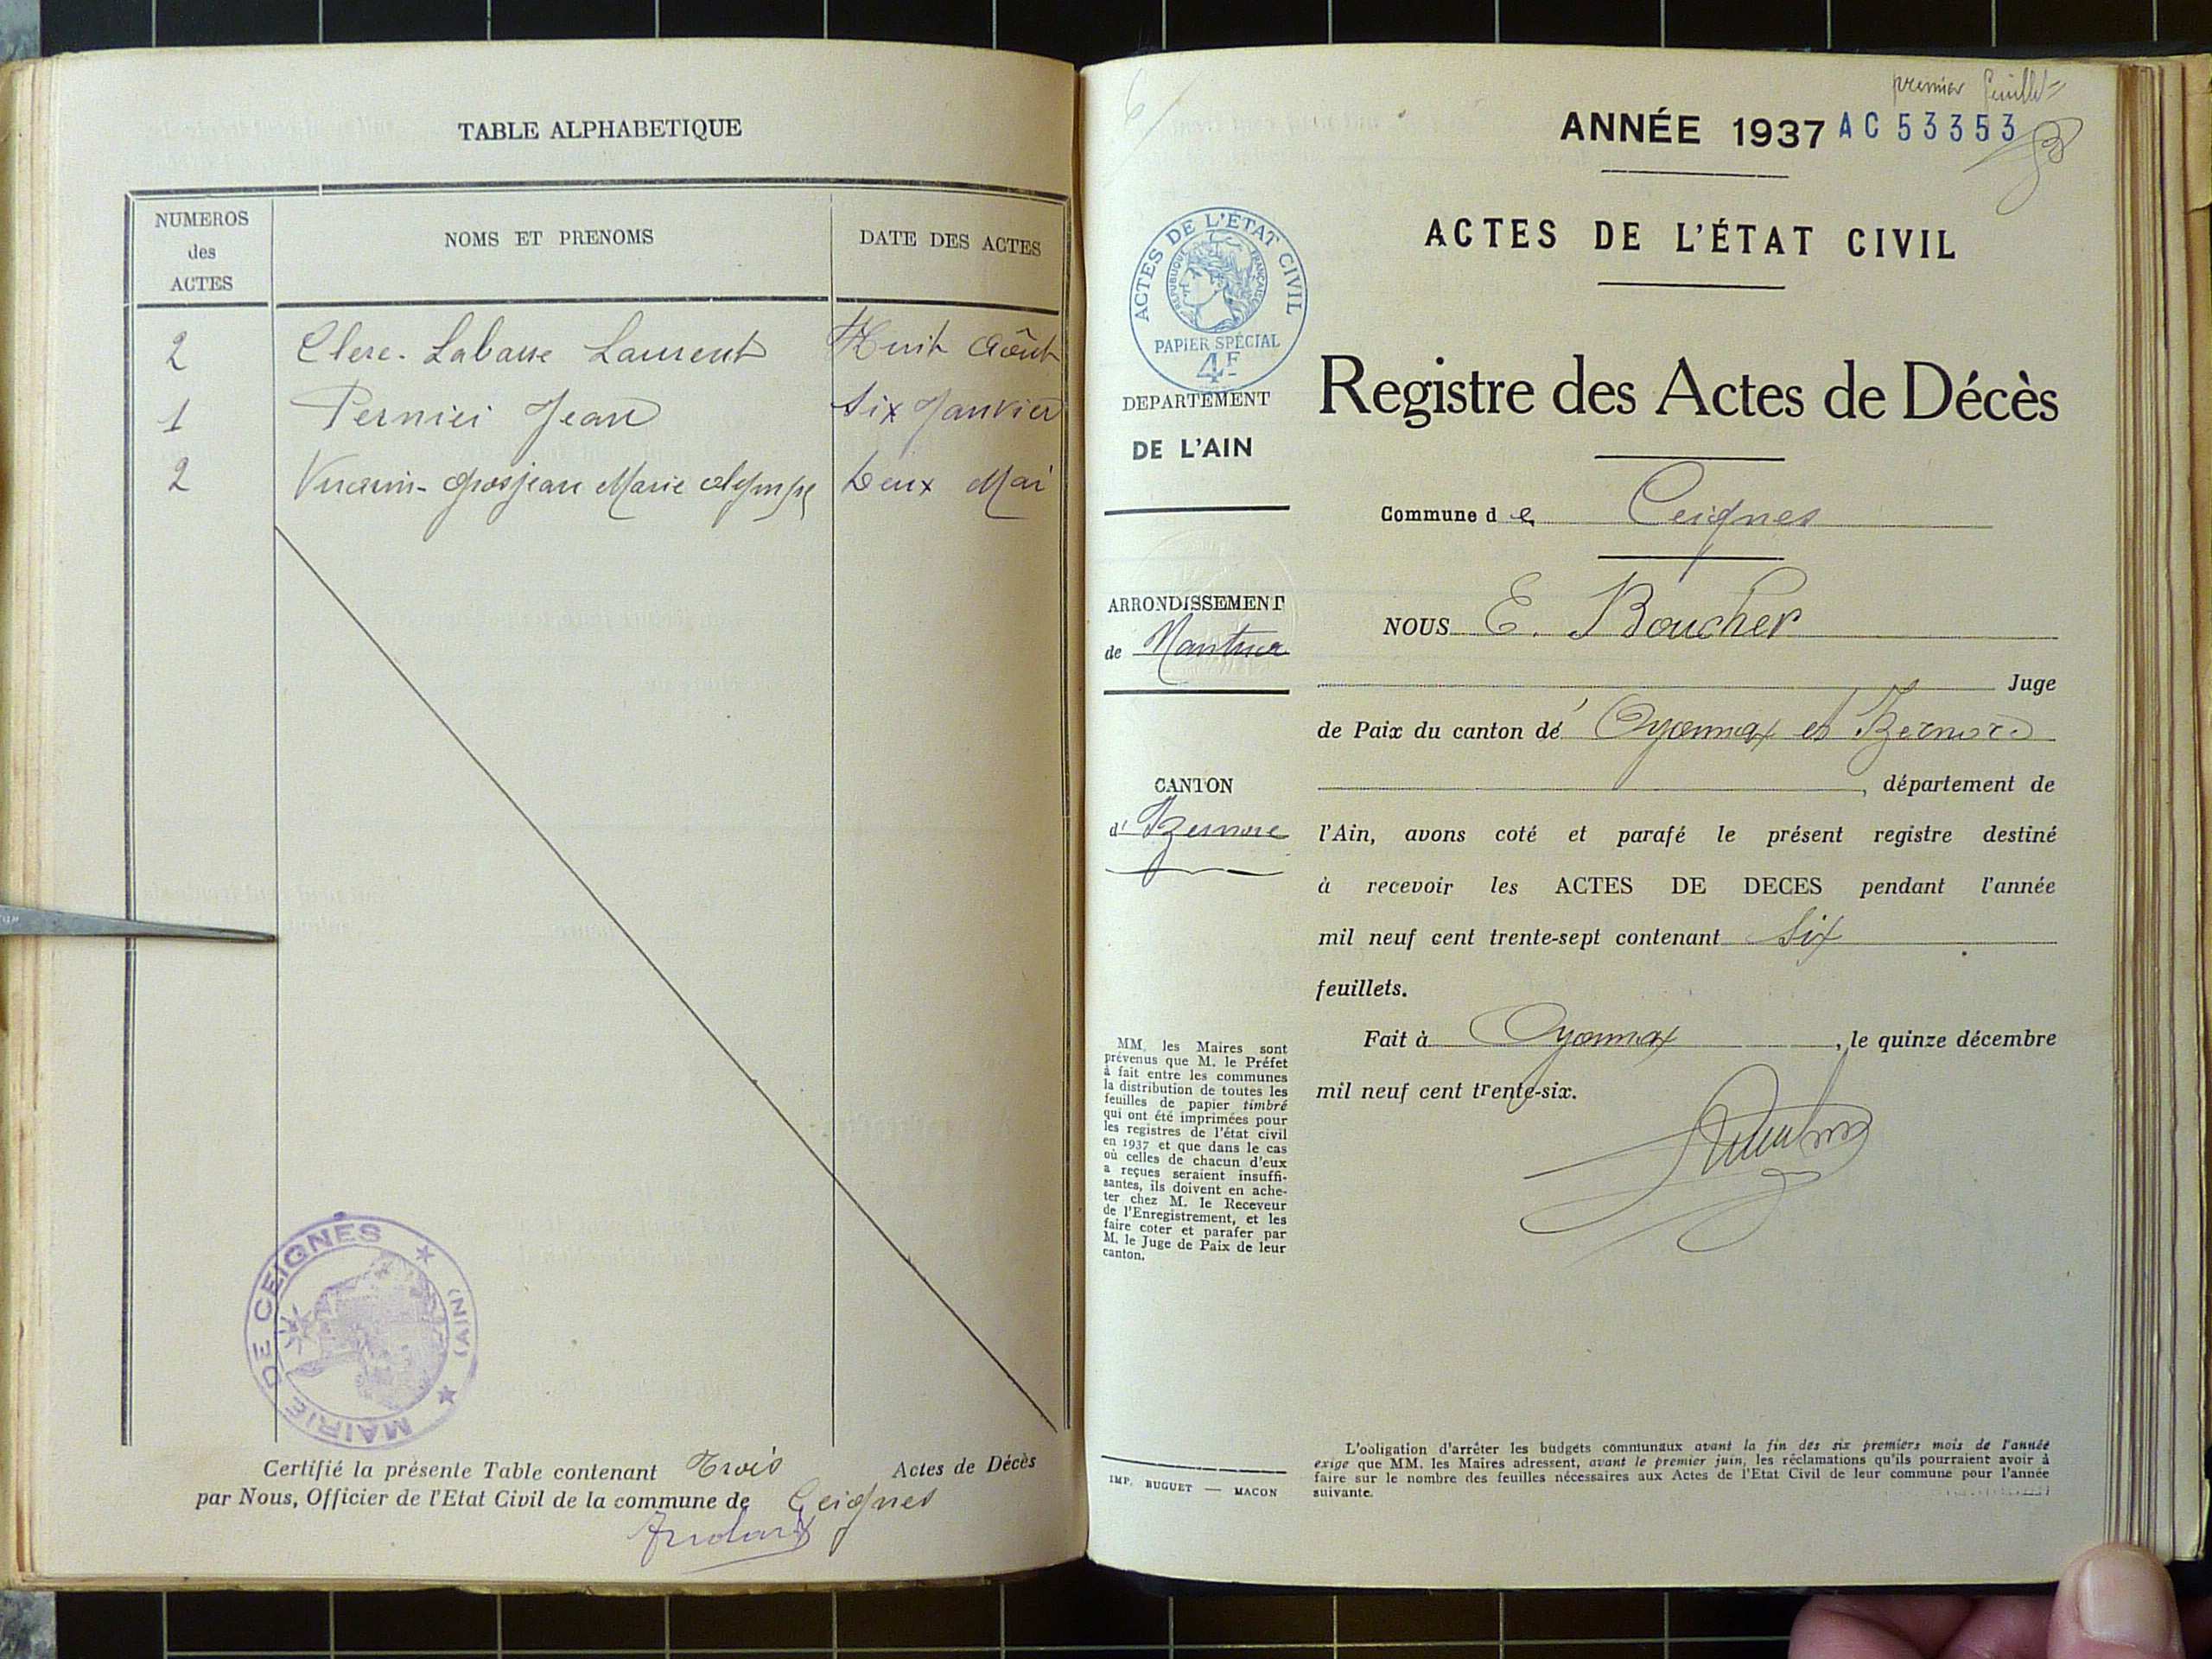 TABLE ALPHABETIQUE
NUMEROS
des
ACTES
NOMS ET PRENOMS
DATE DES ACTES
2 Clerc-Labasse Laurent Huit Août
1 Pernici Jean Six Janvier
2 Vuarin-Grosjean Marie Olympe Deux Mai
MAIRIE DE CEIGNES
(AIN)
Certifié la présente Table contenant Trois Actes de Décès
par Nous, Officier de l'Etat Civil de la commune de Ceignes
premier feuillet
ANNÉE 1937 AC 53353
ACTES DE L'ÉTAT CIVIL
ACTES DE L'ÉTAT CIVIL
RÉPUBLIQUE FRANÇAISE
PAPIER SPÉCIAL
4F
DEPARTEMENT
DE L'AIN
Registre des Actes de Décès
Commune de Ceignes
ARRONDISSEMENT
de Nantua
NOUS E. Boucher
Juge
de Paix du canton dé Oyonnax et Izernore
CANTON
d' Izernore
, département de
l'Ain, avons coté et parafé le présent registre destiné
à recevoir les ACTES DE DECES pendant l'année
mil neuf cent trente-sept contenant Six
feuillets.
Fait à Oyonnax, le quinze décembre
mil neuf cent trente-six.
MM. les Maires sont
prévenus que M. le Préfet
à fait entre les communes
la distribution de toutes les
feuilles de papier timbré
qui ont été imprimées pour
les registres de l'état civil
en 1937 et que dans le cas
où celles de chacun d'eux
a reçues seraient insuffi-
santes, ils doivent en ache-
ter chez M. le Receveur
de l'Enregistrement, et les
faire coter et parafer par
M. le Juge de Paix de leur
canton.
IMP. BUGUET — MACON
L'obligation d'arrêter les budgets communaux avant la fin des six premiers mois de l'année
exige que MM. les Maires adressent, avant le premier juin, les réclamations qu'ils pourraient avoir à
faire sur le nombre des feuilles nécessaires aux Actes de l'Etat Civil de leur commune pour l'année
suivante.